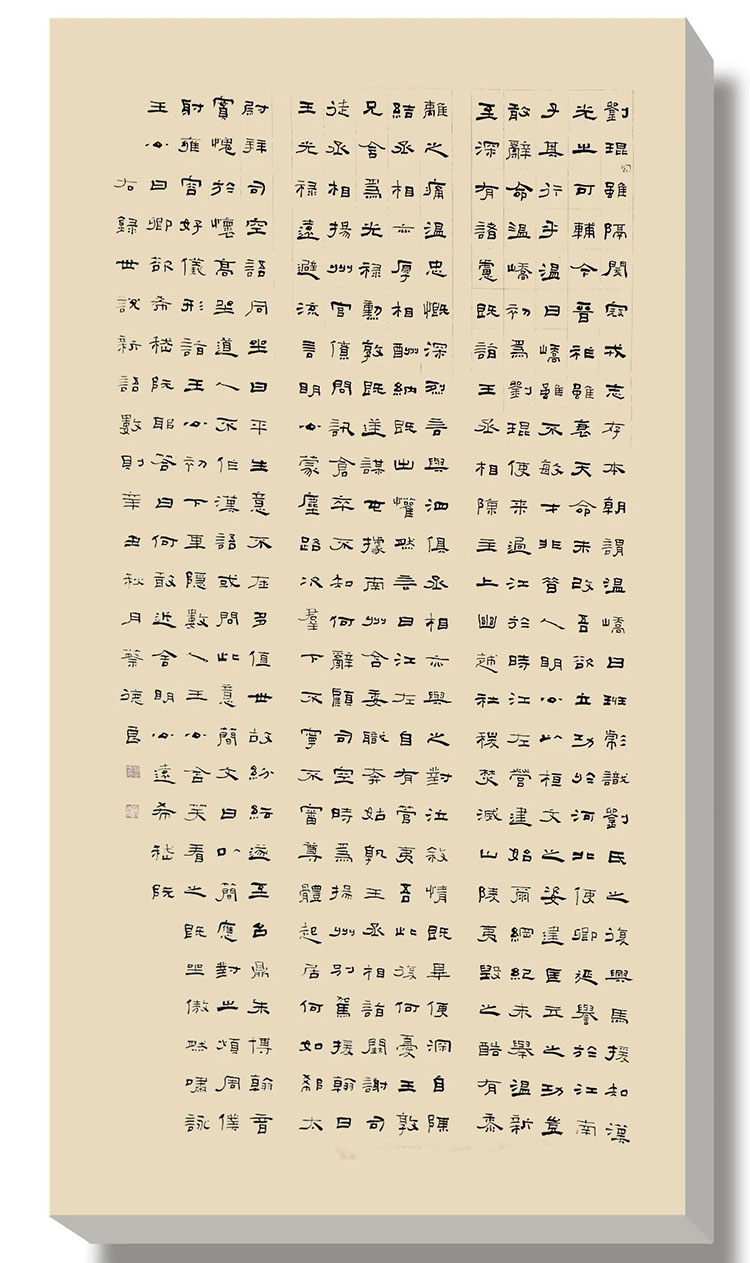 劉琨雖隔閡寇戎志存本朝謂溫嶠曰班彪識劉氏之復興馬援知漢
光之可輔今晉祚雖衰天命未改吾欲立功於河北使卿延譽於江南
子其行乎溫曰嶠雖不敏才非昔人明公以桓文之姿建匡立之功豈
敢辭命溫嶠初爲劉琨使來過江於時江左營建始爾綱紀未舉溫新
至深有諸慮既詣王丞相陳主上幽越社稷焚滅山陵夷毀之酷有黍
離之痛溫忠慨深烈言與泗俱丞相亦與之對泣敘情既畢便深自陳
結丞相亦厚相酬納既出懽然言曰江左自有管夷吾此復何憂王敦
兄含爲光祿勳敦既逆謀屯據南州含委職奔姑孰王丞相詣闕謝司
徒丞相揚州官僚問訊倉卒不知何辭顧司空時爲揚州別駕援翰曰
王光祿遠避流言明公蒙塵路次羣下不寧不審尊體起居何如郗太
尉拜司空語同坐曰平生意不在多值世故紛紜遂至台鼎朱博翰音
實愧於懷高坐道人不作漢語或問此意簡文曰以簡應對之煩周僕
射雍容好儀形詣王公初下車隱數人王公含笑看之既坐傲然嘯詠
王公曰卿欲希嵇阮耶答曰何敢近舍明公遠希嵇阮
右錄世說新語數則辛丑秋月蔡德良